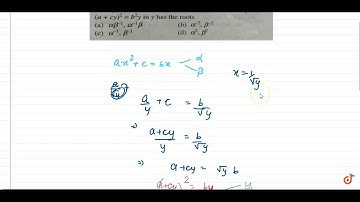 (a + cy)² = b²y in y has the roots
(a) αβ⁻¹, α⁻¹β (b) α⁻², β⁻²
(c) α⁻¹, β⁻¹ (d) α², β²
ax² + c = bx α
β
x = 1/√y
a/y + c = b/√y
⇒ a+cy/y = b/√y
⇒ a+cy = √y b
(a+cy)² = by